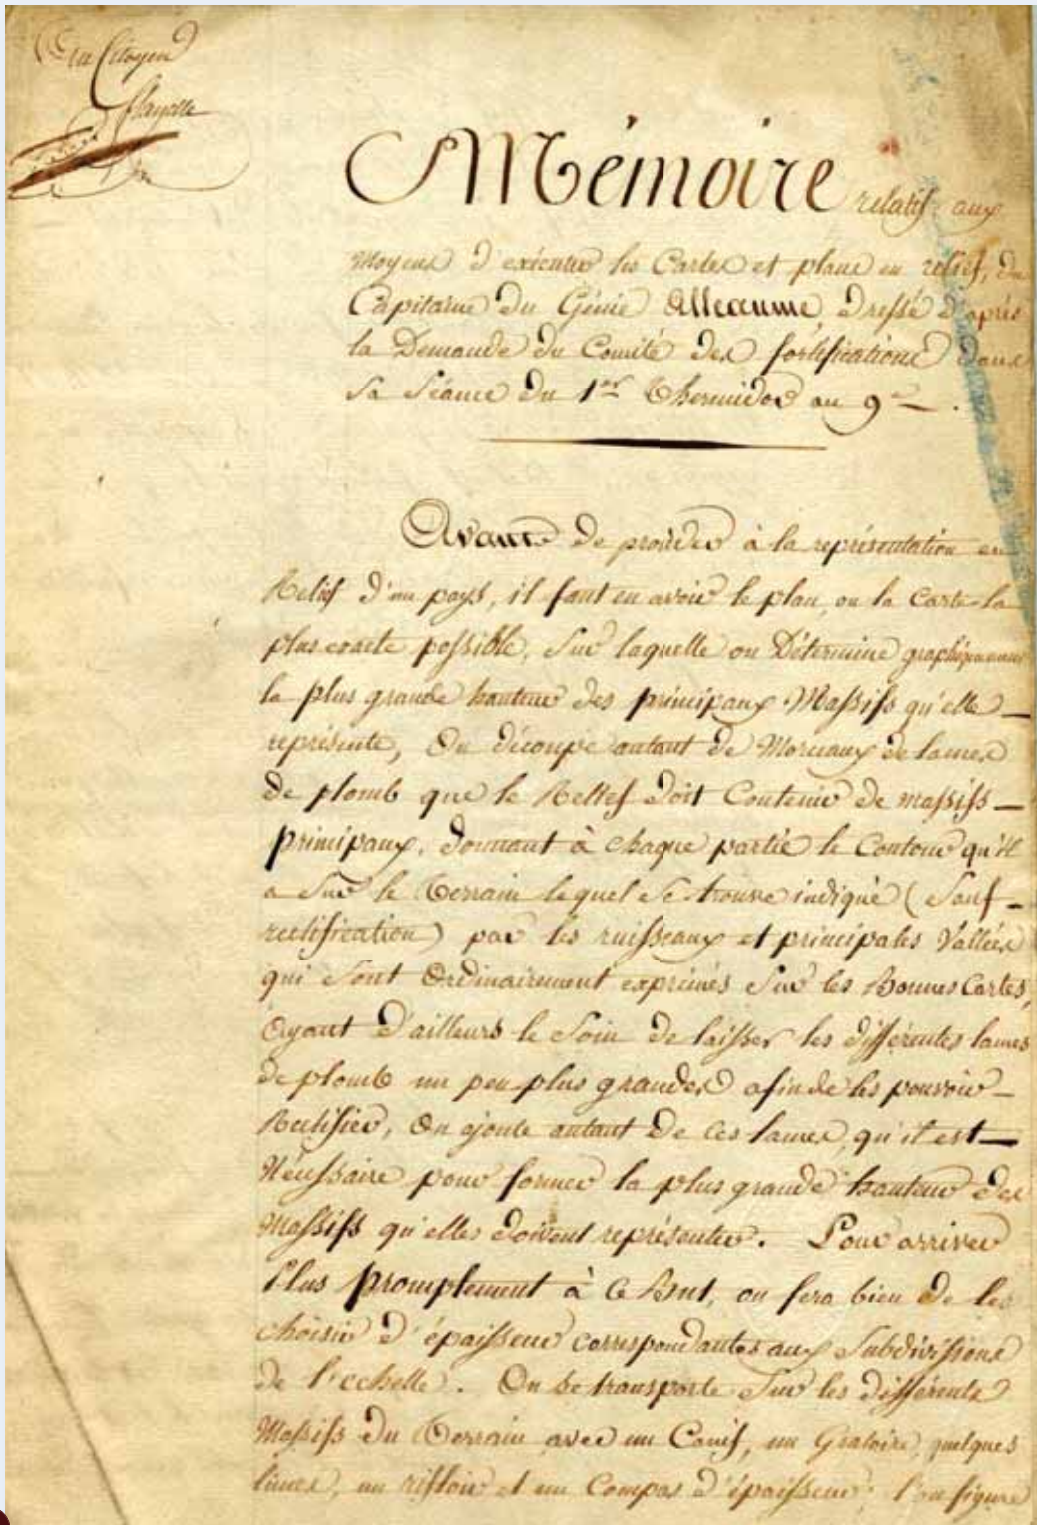 Du Citoyen
Mémoire relatif aux
moyens d'exécuter les Cartes et plans en relief, du
Capitaine du Génie Alleaume dressé d'après
la Demande du Comité des fortifications dans
sa Séance du 1er Thermidor an 9e.
Avant de procéder à la représentation en
Relief d'un pays, il faut en avoir le plan, ou la Carte la
plus exacte possible, sur laquelle on Détermine graphiquement
la plus grande hauteur des principaux Massifs qu'elle
représente, On découpe autant de Morceaux de lames
de plomb que le Relief doit Contenir de massifs
principaux, donnant à chaque partie le Contour qu'il
a sur le Terrain lequel se trouve indiqué (Sauf
rectification) par les ruisseaux et principales Vallées
qui sont Ordinairement exprimés sur les Bonnes Cartes,
Ayant d'ailleurs le soin de laisser les différentes lames
de plomb un peu plus grandes afin de les pouvoir
Rectifier, On ajoute autant de ces lames, qu'il est
Nécessaire pour former la plus grande hauteur des
Massifs qu'elles doivent représenter. Pour arriver
Plus promptement à ce But, on fera bien de les
choisir d'épaisseur correspondantes aux Subdivisions
de l'echelle. On se transporte sur les différents
Massifs du Terrain avec un Canif, un Gratoire, quelques
limes, un rifloir et un Compas d'épaisseur; l'on figure